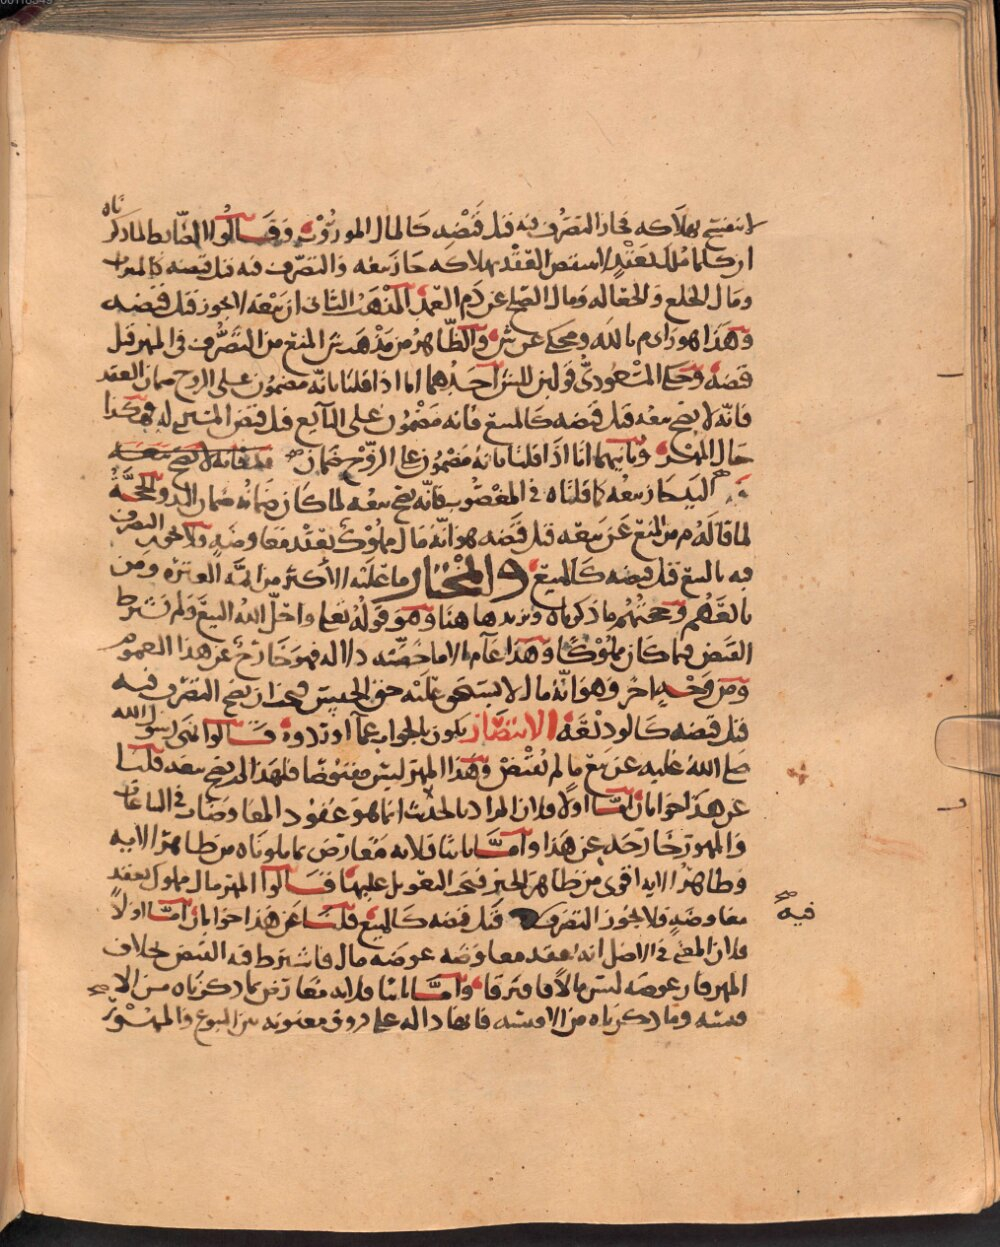 لا ينفسخ بهلاكه فجاز التصرف فيه قبل قبضه كالمال الموروث وقالوا الضابط لما ذكرناه
ان كلما مُلك بعقدٍ لا ينتقض العقد بهلاكه جاز بيعه والتصرف فيه قبل قبضه كالمهر
ومال الخلع والجعاله ومال الصلح عن دم العمد المذهب الثاني ان بيعه لا يجوز قبل قبضه
وهذا هو راي م بالله ومحكي عن ش والظاهر من مذهب ش المنع من التصرف في المهر قبل
قبضه وحكى المسعودي قولين للش احدهما اما اذا قلنا بانه مضمون على الزوج ضمان العقد
فانه لا يصح بيعه قبل قبضه كالمبيع فانه مضمون على البائع قبل قبض المشتري له وهكذا
حال المهر وثانيهما انا اذا قلنا بانه مضمون على الزوج ضمان
اليد جاز بيعه كما قلناه في المغصوب فانه يصح بيعه لما كان ضمانه ضمان اليد والحجة
لما قاله م من المنع عن بيعه قبل قبضه هو انه مال مملوك بعقد معاوضه فلا يجوز التصرف
فيه بالبيع قبل قبضه كالمبيع والمختار ما عليه الاكثر من ائمة العتره ومن
تابعهم وحجتهم ما ذكرناه ونزيد هاهنا وهو قوله تعالى واحل الله البيع ولم يشرط
القبض فيما كان مملوكا وهذا عام الا ما خصته دلاله فهو خارج عن هذا العموم
ومن وجه اخر وهو انه مال لا يستحق عليه حق الحبس فجاز ان يصح التصرف فيه
قبل قبضه كالوديعه الانتصار يكون بالجواب عما اوردوه قالوا نهى رسول الله
صلى الله عليه عن بيع ما لم يقبض وهذا المهر ليس مقبوضا فلهذا لم يصح بيعه قلنا
عن هذا جوابان اما اولا فلان المراد بالحديث انما هو عقود المعاوضات في البياعات
والمهور خارجه عن هذا واما ثانيا فلانه معارض بما تلوناه من ظاهر الايه
وظاهر الايه اقوى من ظاهر الخبر فيجب التعويل عليها قالوا المهر مال مملوك بعقد
معاوضه فلا يجوز التصرف فيه قبل قبضه كالمبيع قلنا عن هذا جوابان اما اولا
فلان المعنى في الاصل انه عقد معاوضه عوضه مال فاشترط فيه القبض بخلاف
المهر فان عوضه ليس مالا فافترقا واما ثانيا فلانه معارض بما ذكرناه من الا
قيسه وما ذكرناه من الاقيسه فانها داله على فروق معنويه بين البيوع والمهور